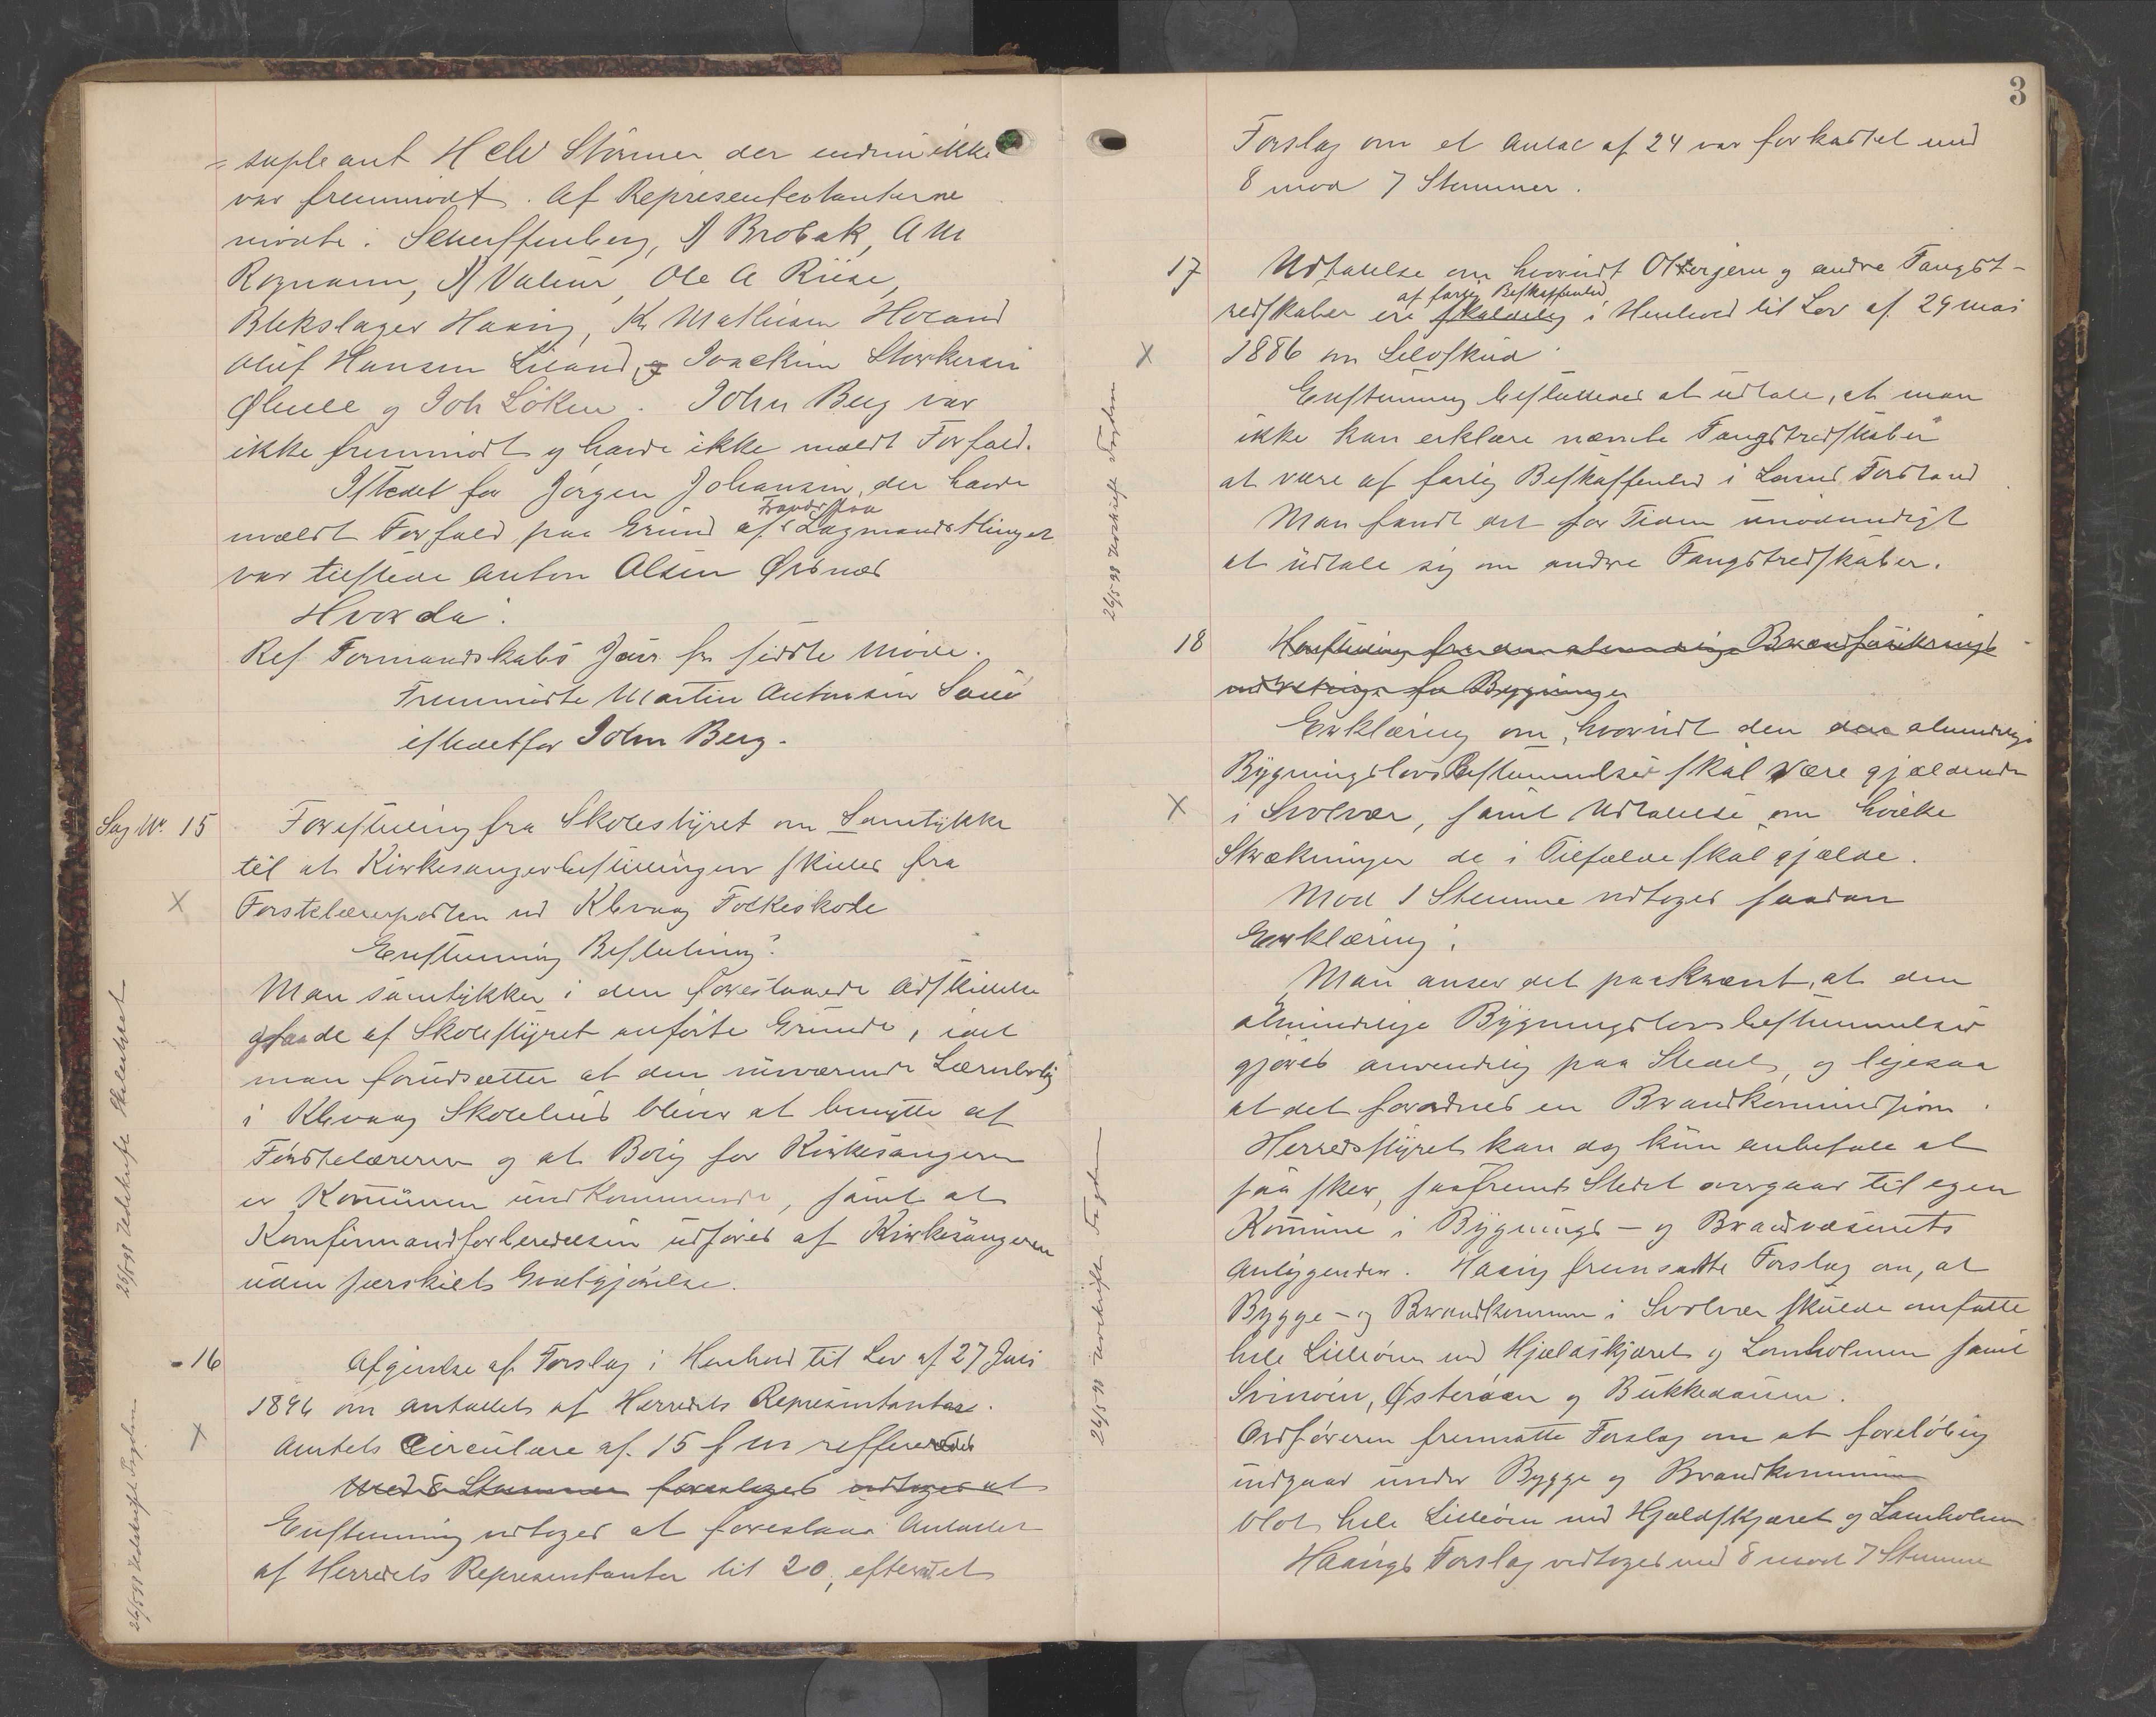 supleant H Chr Störmer der endnu ikke
var fremmødt. Af Repræsentantanterne
mødte: Scharffenberg, N Brobak, A M
Rognann, N Valeur, Ole A Riise,
Blikslager Haaing, K Mathisen Hoeand
Oluf Hansen Liland, Joackim Storkersen
Øhelle og Joh Löken. John Berg var
ikke fremmødt og havde ikke meldt Forfald.
Istedet for Jørgen Johansen, der havde
Fravær fra
meldt Forfald paa Grund af Lagmandsthinget
var tilstede Anton Olsen Ørsnes
Hvorda:
Ref Formandskabs Jour for sidste Møde.
Fremmødte Martin Antonsen
istedetfor John Berg.
Sag No. 15
Forestilling fra Skolestyret om Samtykke
til at Kirkesangerbestillingen skilles fra
Førstelærerposten ved Kleivaag Folkeskole
Enstemmig Beslutning:
Man samtykker i den forestaaede Adskillelse
af Skolestyret anførte Grunde, idet
man forudsætter at den nuværende Lærerbolig
i Kleivaag Skolehus bliver at benytte af
Førstelæreren og at Bolig for Kirkesangeren
er Kommunen uvedkommende, samt at
Konfirmandforberedelsen udføres af Kirkesangeren
uden særskilt Godtgjørelse.
26/5 98 Udskrift Skolestyret
- 16
Afgivelse af Forslag i Henhold til Lov af 27 Juni
1896 om Antallet af Herredets Repræsentanter.
Amtets Circulære af 15 f M refferertes
Med 8 Stemmer foresloges vedtoges at
Enstemmig vedtoges at foreslaa Antallet
af Herredets Repræsentanter til 20, efterat et
26/5 98 Udskrift Fogden
3
Forslag om et Antal af 24 var forkastet med
8 mod 7 Stemmer.
17
Udtalelse om hvorvidt Otterjern og andre Fangst-
af farlig Beskaffenhed
redskaber ere skadelig i Henhold til Lov af 29 Mai
1886 om Selvskud.
Enstemmig besluttedes at udtale, at man
ikke kan erklære nævnte Fangstredskaber
at være af farlig Beskaffenhed i Lovens Forstand
Man fandt det for Tiden unødvendigt
at udtale sig om andre Fangstredskaber.
26/5 98 Udskrift Fogden
18
Henstilling fra den almindelige Brandforsikrings
indretninge for Bygninger
Erklæring om, hvorvidt den den almindelige
Bygningslovs Bestemmelser skal være gjældende
i Svolvær, samt Udtalelse om hvilke
Strækninger de i Tilfælde skal gjælde.
Mod 1 Stemme vedtoges saadan
Erklæring:
Man anser det paakrævet, at den
almindelige Bygningslovs bestemmelser
gjøres anvendelig paa Stedet, og ligesaa
at det forordnes en Brandkommission.
Herredsstyret kan dog kun anbefale at
saa sker, saafremt Stedet overgaar til egen
Kommune i Bygnings- og Brandvæsenets
Anliggender. Haaing fremsatte Forslag om, at
Bygge- og Brandkommun i Svolvær skulde omfatte
hele Lilleøen med Hjeldskjæret og Lamholmen samt
Svinøen, Østerøen og Bukkedauen.
Ordføreren fremsatte Forslag om at foreløbig
indgaar under Bygge og Brandkommunen
blot hele Lilleøen med Hjeldskjæret og Lamholmen
Haaings Forslag vedtoges med 8 mod 7 Stemmer
26/5 98 Udskrift Fogden